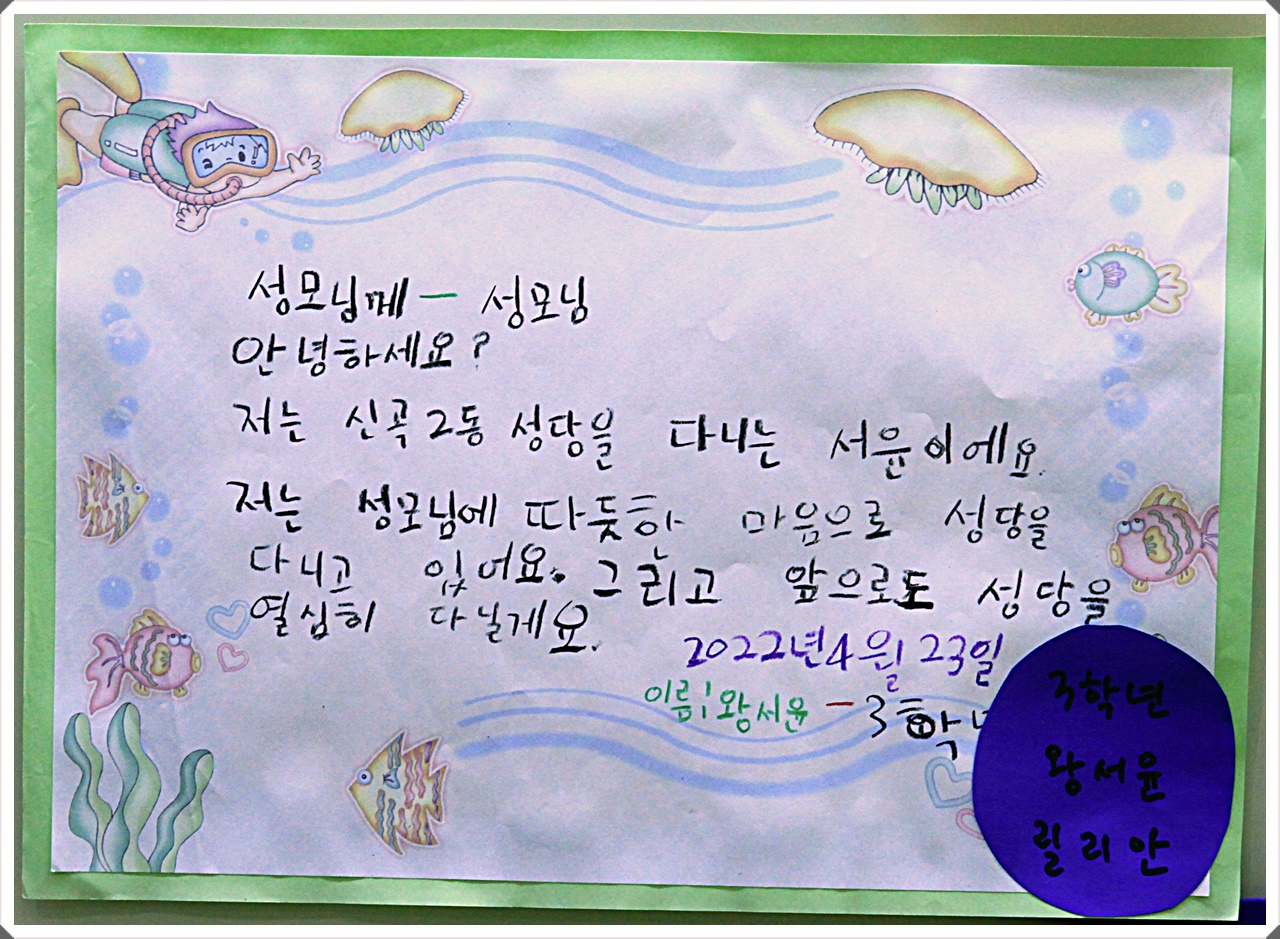 성모님께 — 성모님
안녕하세요?
저는 신곡2동 성당을 다니는 서윤이에요.
저는 성모님에 따듯한 마음으로 성당을
다니고 있어요. 그리고 앞으로도 성당을
열심히 다닐게요.
2022년4월 23일
이름:왕서윤 — 3학년
3학년
왕서윤
릴리안